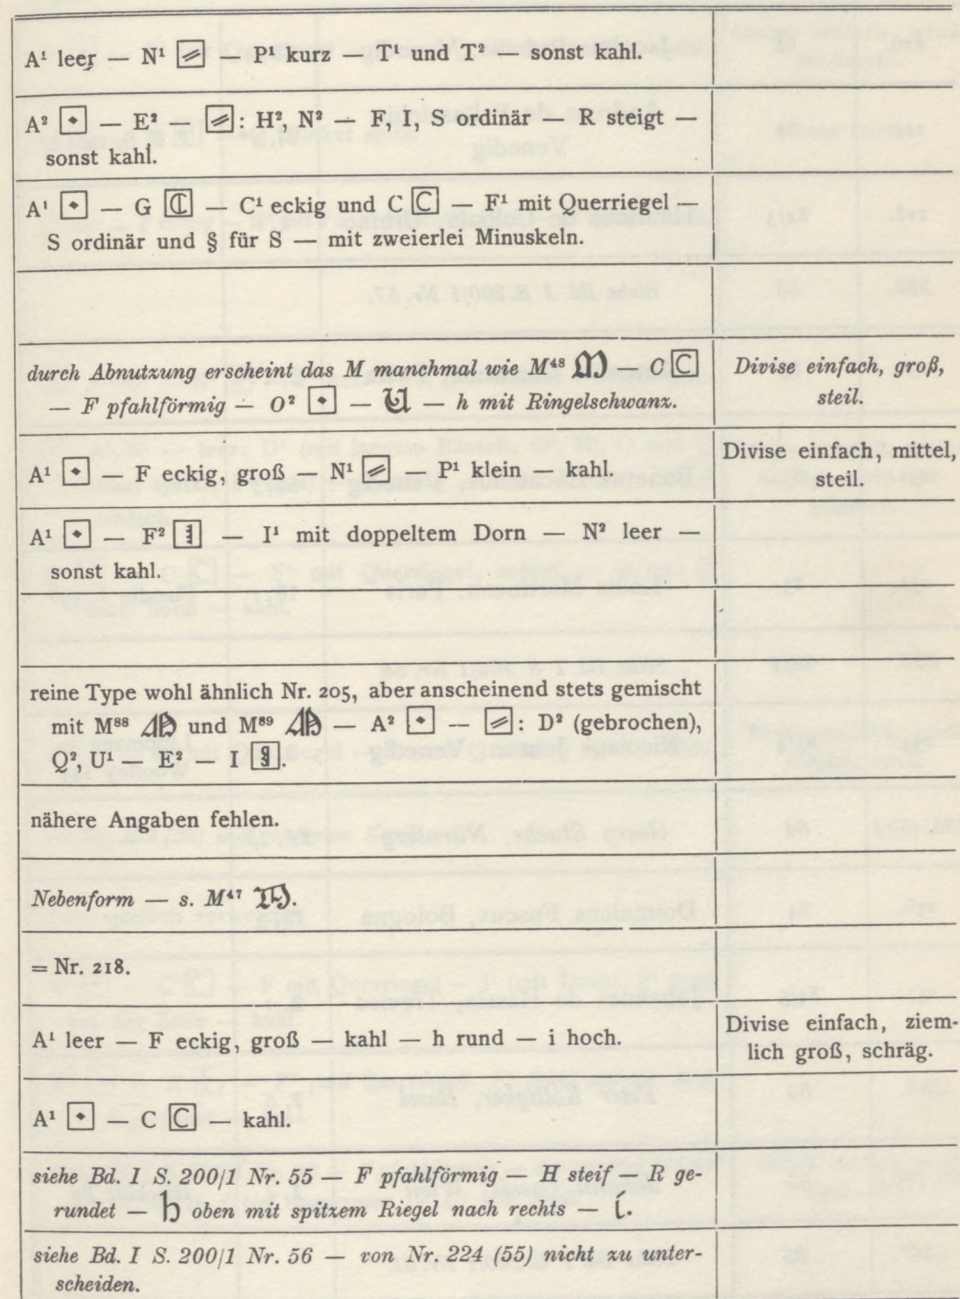 A¹ leer — N¹ — P¹ kurz — T¹ und T² — sonst kahl.
A² — E² — : H², N² — F, I, S ordinär — R steigt —
sonst kahl.
A¹ — G ℂ — C¹ eckig und C C — F¹ mit Querriegel —
S ordinär und § für S — mit zweierlei Minuskeln.
durch Abnutzung erscheint das M manchmal wie M⁴⁸ 𝔐 — C C
— F pfahlförmig — O² — 𝔘 — h mit Ringelschwanz.
Divise einfach, groß,
steil.
A¹ — F eckig, groß — N¹ — P¹ klein — kahl.
Divise einfach, mittel,
steil.
A¹ — F² — I¹ mit doppeltem Dorn — N² leer —
sonst kahl.
reine Type wohl ähnlich Nr. 205, aber anscheinend stets gemischt
mit M⁸⁸ und M⁸⁹ — A² — : D² (gebrochen),
Q², U¹ — E² — I §.
nähere Angaben fehlen.
Nebenform — s. M⁴⁷.
= Nr. 218.
A¹ leer — F eckig, groß — kahl — h rund — i hoch.
Divise einfach, ziem-
lich groß, schräg.
A¹ — C C — kahl.
siehe Bd. I S. 200/1 Nr. 55 — F pfahlförmig — H steif — R ge-
rundet — h oben mit spitzem Riegel nach rechts — í.
siehe Bd. I S. 200/1 Nr. 56 — von Nr. 224 (55) nicht zu unter-
scheiden.